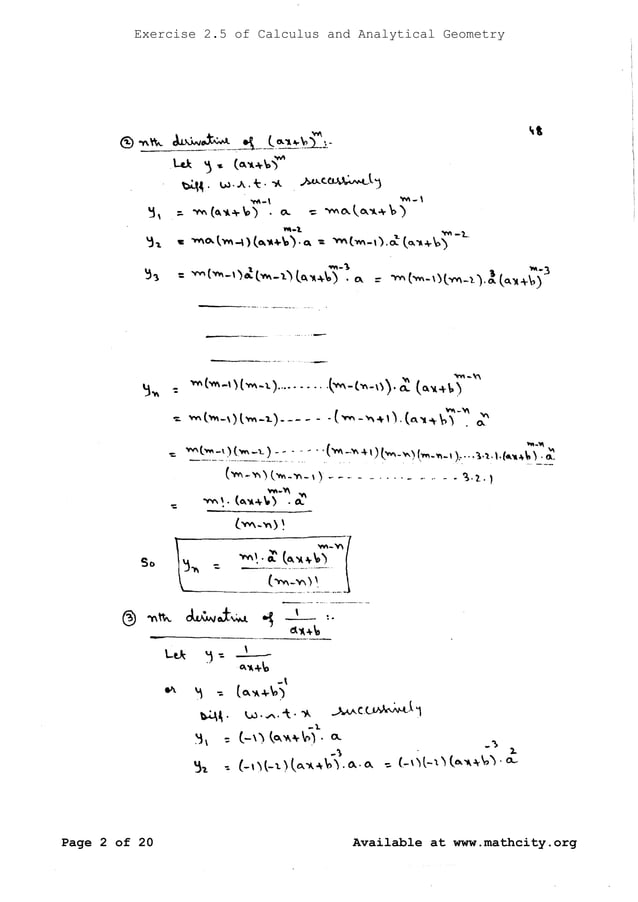 Exercise 2.5 of Calculus and Analytical Geometry
48
② nth derivative of (ax+b)^m :-
Let y = (ax+b)^m
Diff. w.r.t. x successively
y₁ = m(ax+b)^{m-1} . a = ma(ax+b)^{m-1}
y₂ = ma(m-1)(ax+b)^{m-2} . a = m(m-1).a²(ax+b)^{m-2}
y₃ = m(m-1)a²(m-2)(ax+b)^{m-3} . a = m(m-1)(m-2).a³(ax+b)^{m-3}
yₙ = m(m-1)(m-2)..........(m-(n-1)).aⁿ(ax+b)^{m-n}
= m(m-1)(m-2)------(m-n+1).(ax+b)^{m-n} . aⁿ
= m(m-1)(m-2)------(m-n+1)(m-n)(m-n-1)....3.2.1.(ax+b)^{m-n} . aⁿ
(m-n)(m-n-1)------------3.2.1
= m!.(ax+b)^{m-n} . aⁿ
(m-n)!
So yₙ = m!.aⁿ(ax+b)^{m-n}
(m-n)!
③ nth derivative of 1/(ax+b) :-
Let y = 1/(ax+b)
or y = (ax+b)^{-1}
Diff. w.r.t. x successively
y₁ = (-1)(ax+b)^{-2} . a
y₂ = (-1)(-2)(ax+b)^{-3}.a.a = (-1)(-2)(ax+b)^{-3}.a²
Page 2 of 20 Available at www.mathcity.org